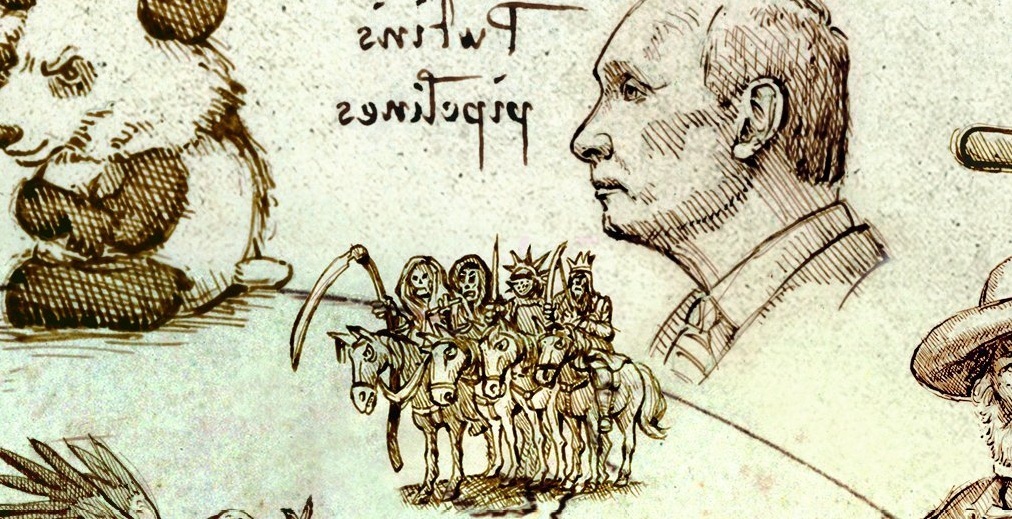 Putin's
pipelines